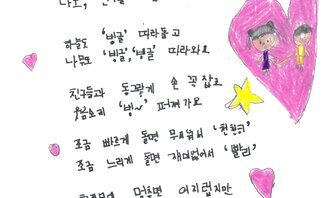 하늘도 '빙글' 따라돌고
나무도 '빙글', '빙글' 따라와요
친구들과 동그랗게 손 꼭 잡고
웃음소리 '빙~' 퍼져가요
조금 빠르게 돌면 무서워서 '천천히'
조금 느리게 돌면 재미없어서 '빨리'
멈추면 어지럽지만